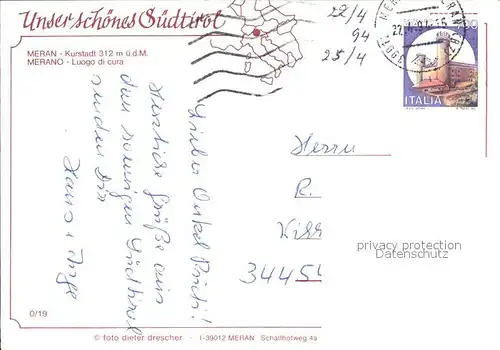 Unser schönes Südtirol
MERAN - Kurstadt 312 m ü.d.M.
MERANO - Luogo di cura
22/4
94
25/4
ITALIA
Lieber Onkel
Herzliche Grüße aus
dem sonnigen Südtirol
senden Dir
Hans + Inge
Herrn
R.
34454
privacy protection
Datenschutz
0/19
© foto dieter drescher - I-39012 MERAN Schaffhofweg 4a